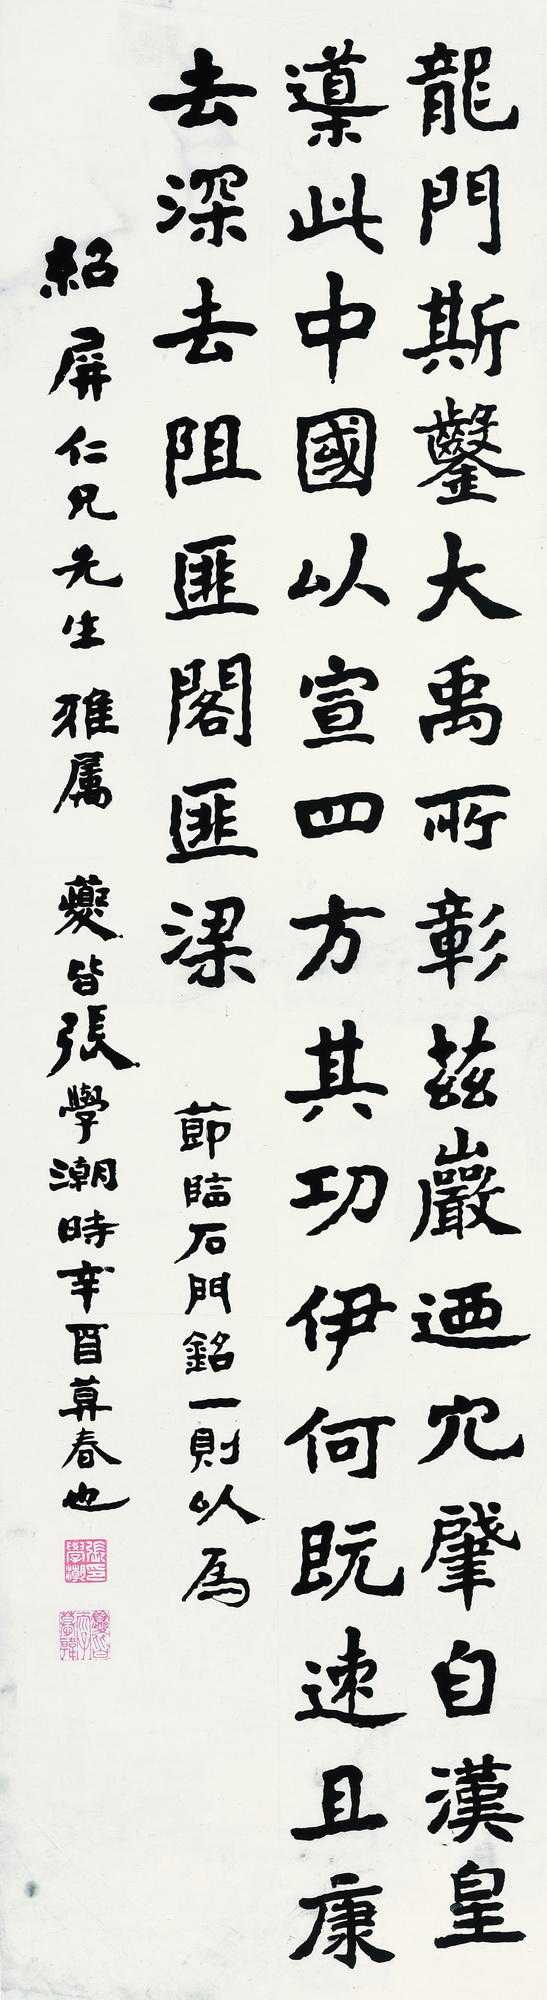 龍門斯鑿大禹所彰茲巖迺穴肇自漢皇
導此中國以宣四方其功伊何既速且康
去深去阻匪閣匪梁　節臨石門銘一則以為
紹屏仁兄先生雅屬　夔皆張學潮時辛酉莫春也